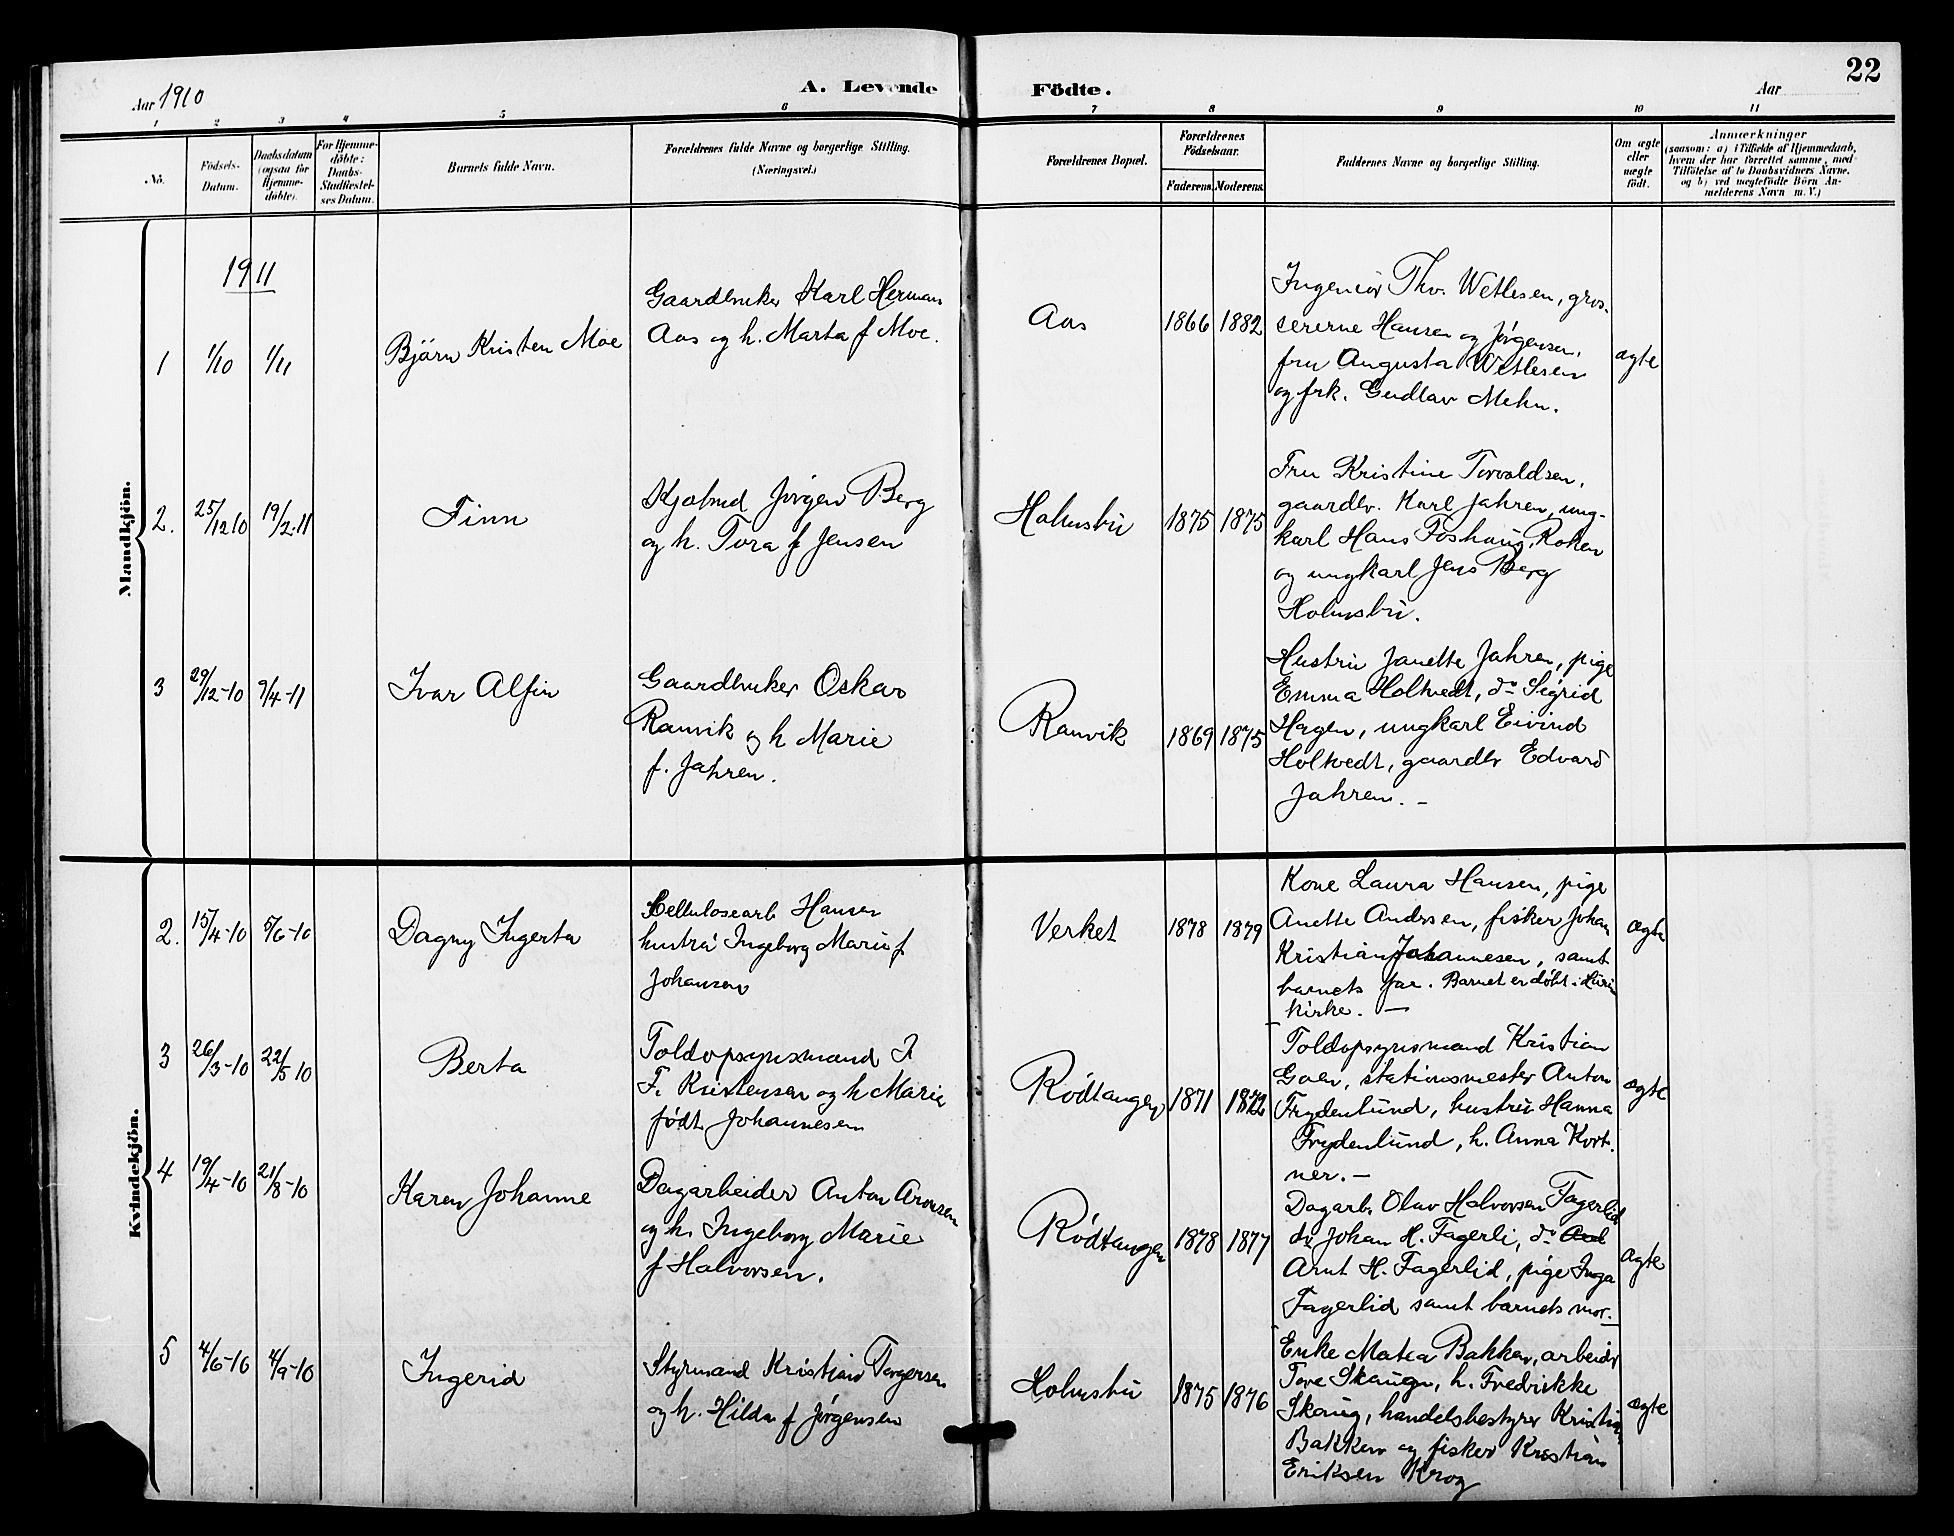 Aar 1910
A. Levende Födte.
22
Aar
1 2 3 4 5 6 7 8 9 10 11
No.
Födsels-
Datum.
Daabsdatum
(ogsaa for
Hjemme-
døbte).
For Hjemme-
döbte:
Daabs-
Stadfæstel-
ses Datum.
Barnets fulde Navn.
Forældrenes fulde Navne og borgerlige Stilling.
(Næringsvei.)
Forældrenes Bopæl.
Forældrenes
Födselsaar.
Faderens. Moderens.
Faddernes Navne og borgerlige Stilling.
Om ægte
eller
uægte
födt.
Anmærkninger
(saasom: a) i Tilfælde af Hjemmedaab,
hvem der har forrettet samme, med
Tilföielse af to Daabsvidners Navne,
og b) ved uægtefödte Börn An-
melderens Navn m. V.)
Mandkjön.
1911
1
1/10
1/11
Björn Kristen Moe
Gaardbruker Karl Herman
Aas og h. Marta f Moe.
Aas
1866 1882
Ingeniör Thv. Wetlesen, gros-
sererne Hansen og Jörgensen,
fru Augusta Wetlesen
og frk. Gudlav Mehn.
ægte
2.
25/12 10
19/2-11
Finn
Kjøbmd Jörgen Berg
og h. Tora f Jensen
Holmsbu
1875 1875
Fru Kristine Torvaldsen,
gaardbr. Karl Jahren, ung-
karl Hans Foshaug, Roken
og ungkarl Jens Berg
Holmsbu.
3
29/12-10
9/4-11
Ivar Alfin
Gaardbruker Oskar
Ranvik og h Marie
f. Jahren.
Ranvik
1869 1875
Hustru Janette Jahren, pige
Emma Holtvedt, do Sigrid
Hagen, ungkarl Eivind
Holtvedt, gaardbr Edvard
Jahren. –
Kvindekjön.
2.
15/4-10
5/6-10
Dagny Ingerta
Cellulosearb Hansen
hustru Ingeborg Marie f.
Johansen
Verket
1878 1879
Kone Laura Hansen, pige
Anette Andrsen, fisker Johan
Kristian Johannesen, samt
barnets far. Barnet er döbt i
kirke. –
ægte
3
26/3-10
22/5 10
Berta
Toldopsynsmand J.
F. Kristensen og h Marie
födt Johannesen
Rödtangen
1871
Toldopsynsmand Kristian
Goen, stationsmester Anton
Frydenlund, hustru Hanna
Frydenlund, h. Anna Kort-
ner. –
ægte
4
19/4-10
21/8-10
Karen Johanne
Dagarbeider Anton Aronsen
og h. Ingeborg Marie
f Halvorsen.
Rödtangen
1878 1877
Dagarb. Olav Halvorsen Fagerlid
do Johan H. Fagerli, do
Arnt H. Fagerlid, pige Inga
Fagerlid samt barnets mor.
ægte
5
4/6-10
4/9-10
Ingerid
Styrmand Kristian Torgersen
og h. Hilda f Jörgensen
Holmsbu
1875 1876
Enke Matea Bakken, arbeider
Tore Skaugn, h. Fredrikke
Skaug, handelsbestyrer Kristian
Bakken og fisker Kristian
Eriksen Krog
ægte